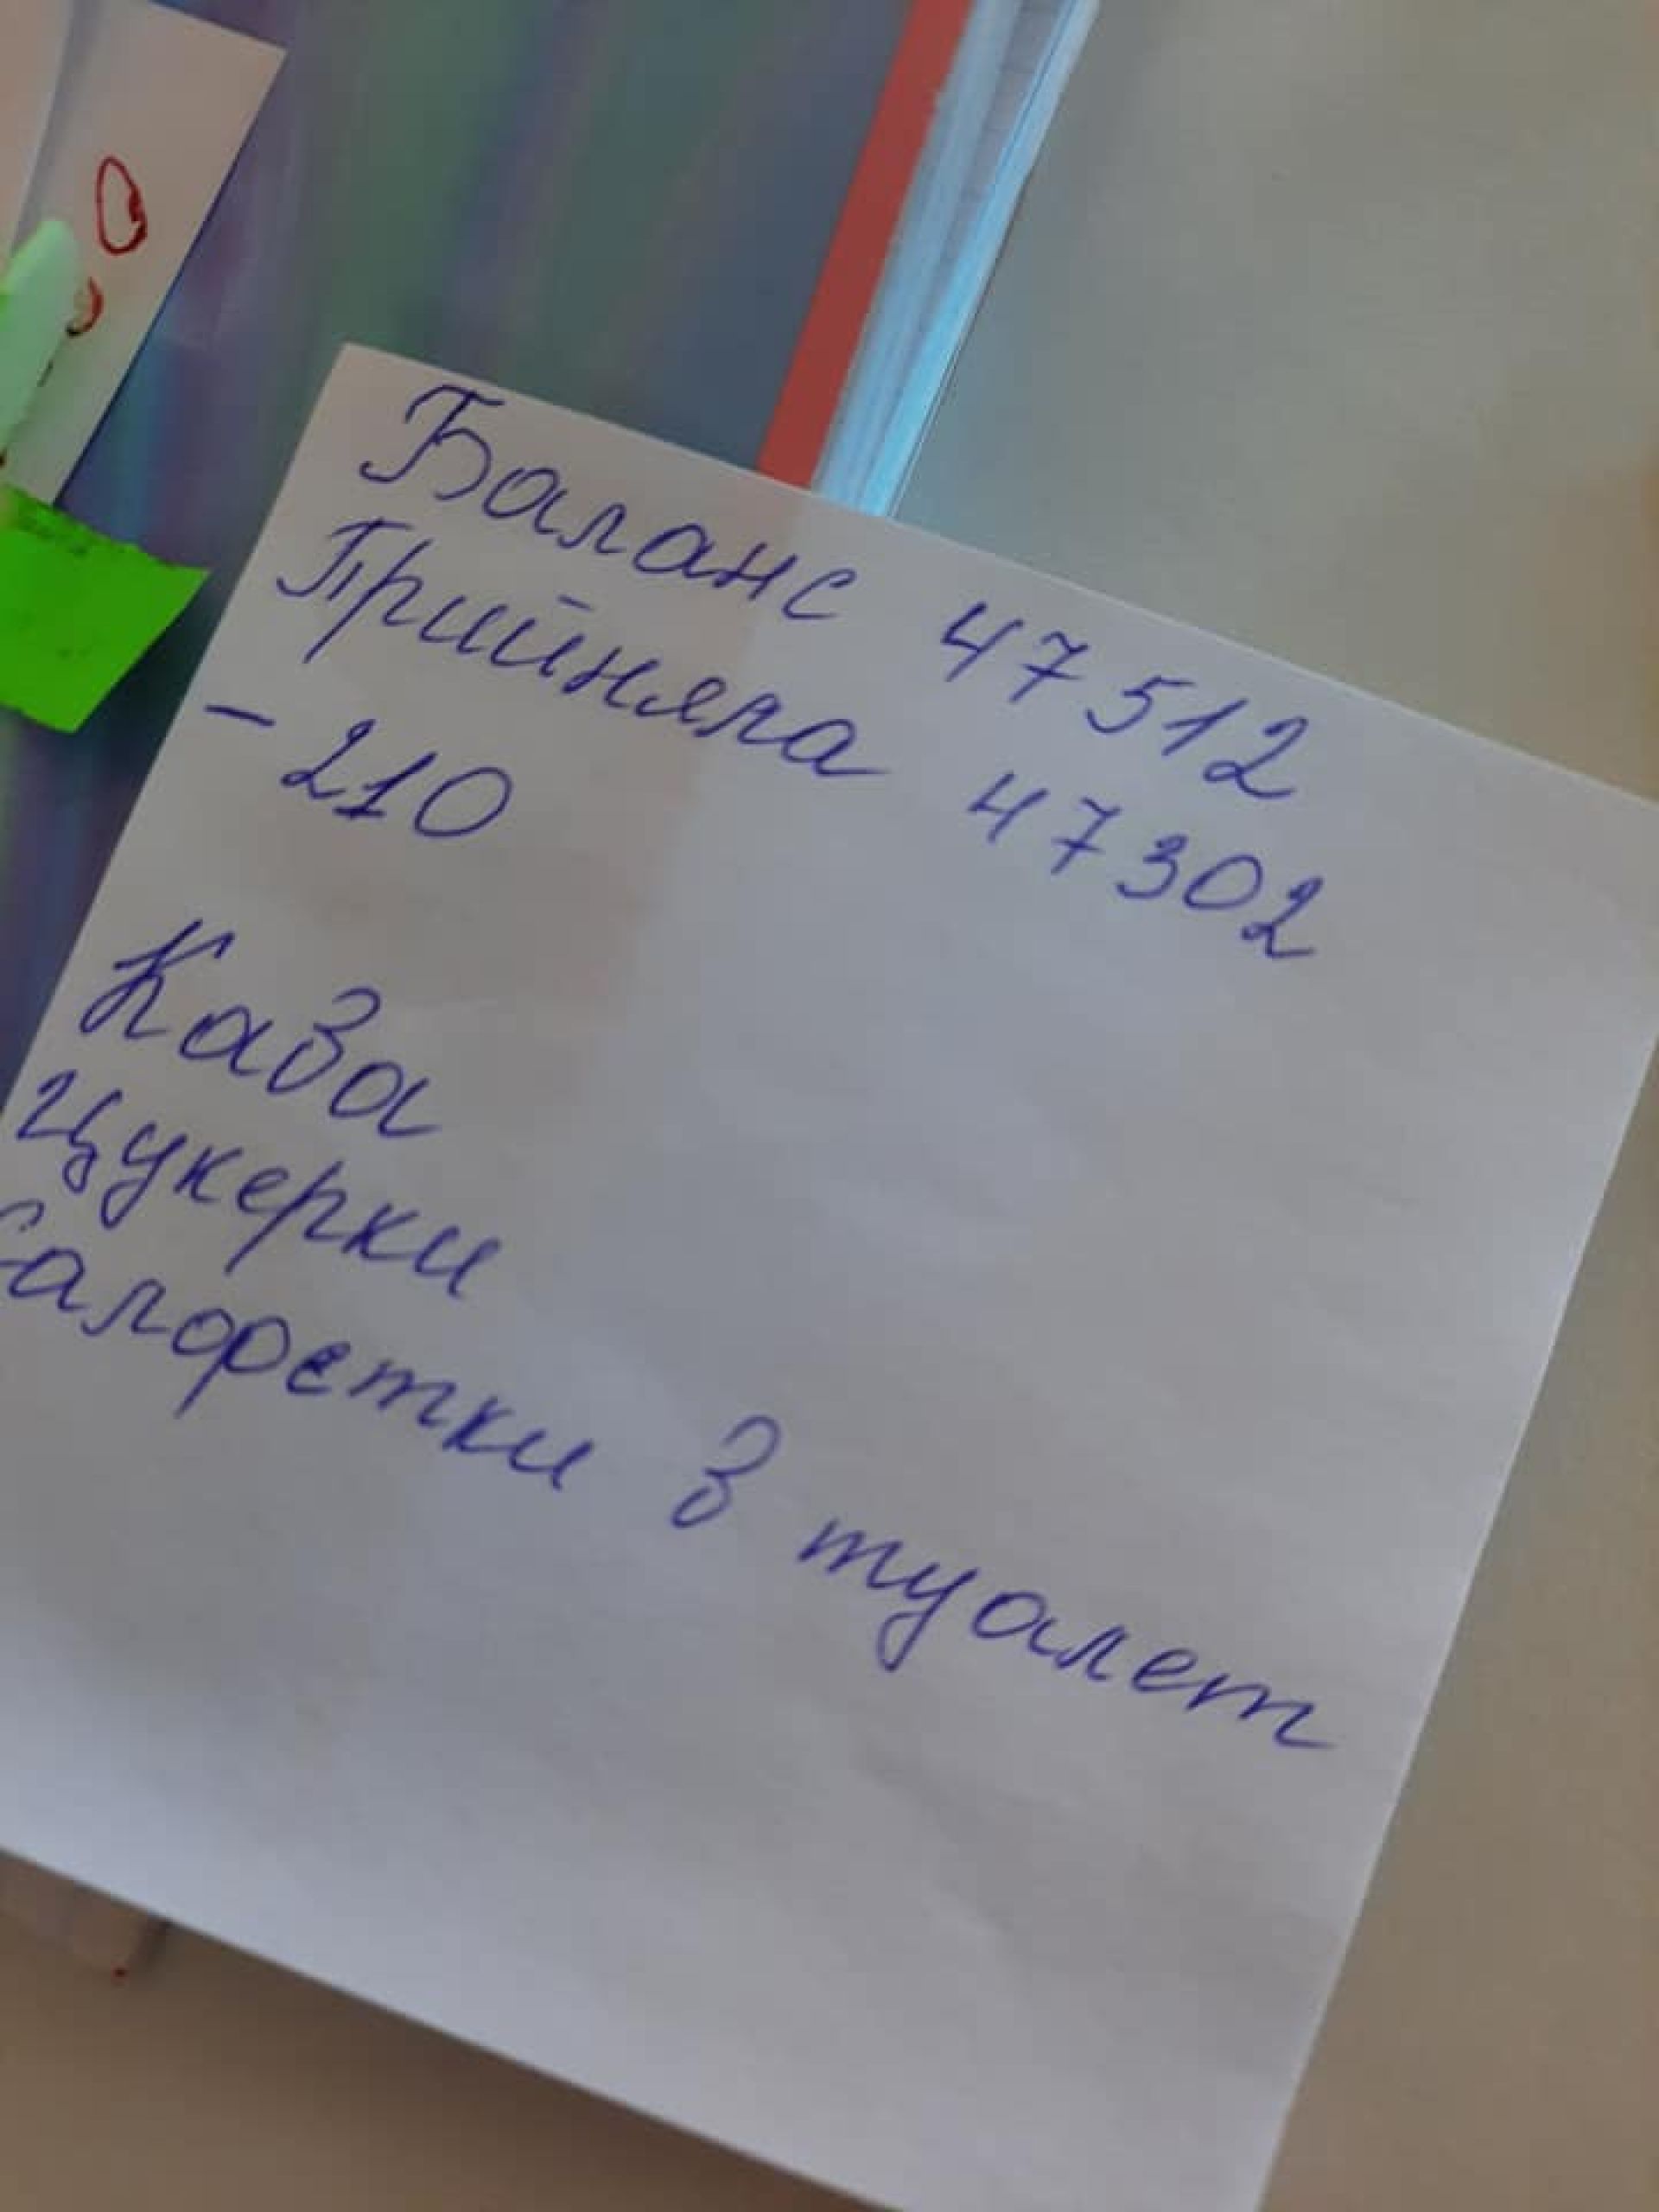 Баланс 47512
Прийняла 47302
- 210
Кава
Цукерки
Салоретки в туалет